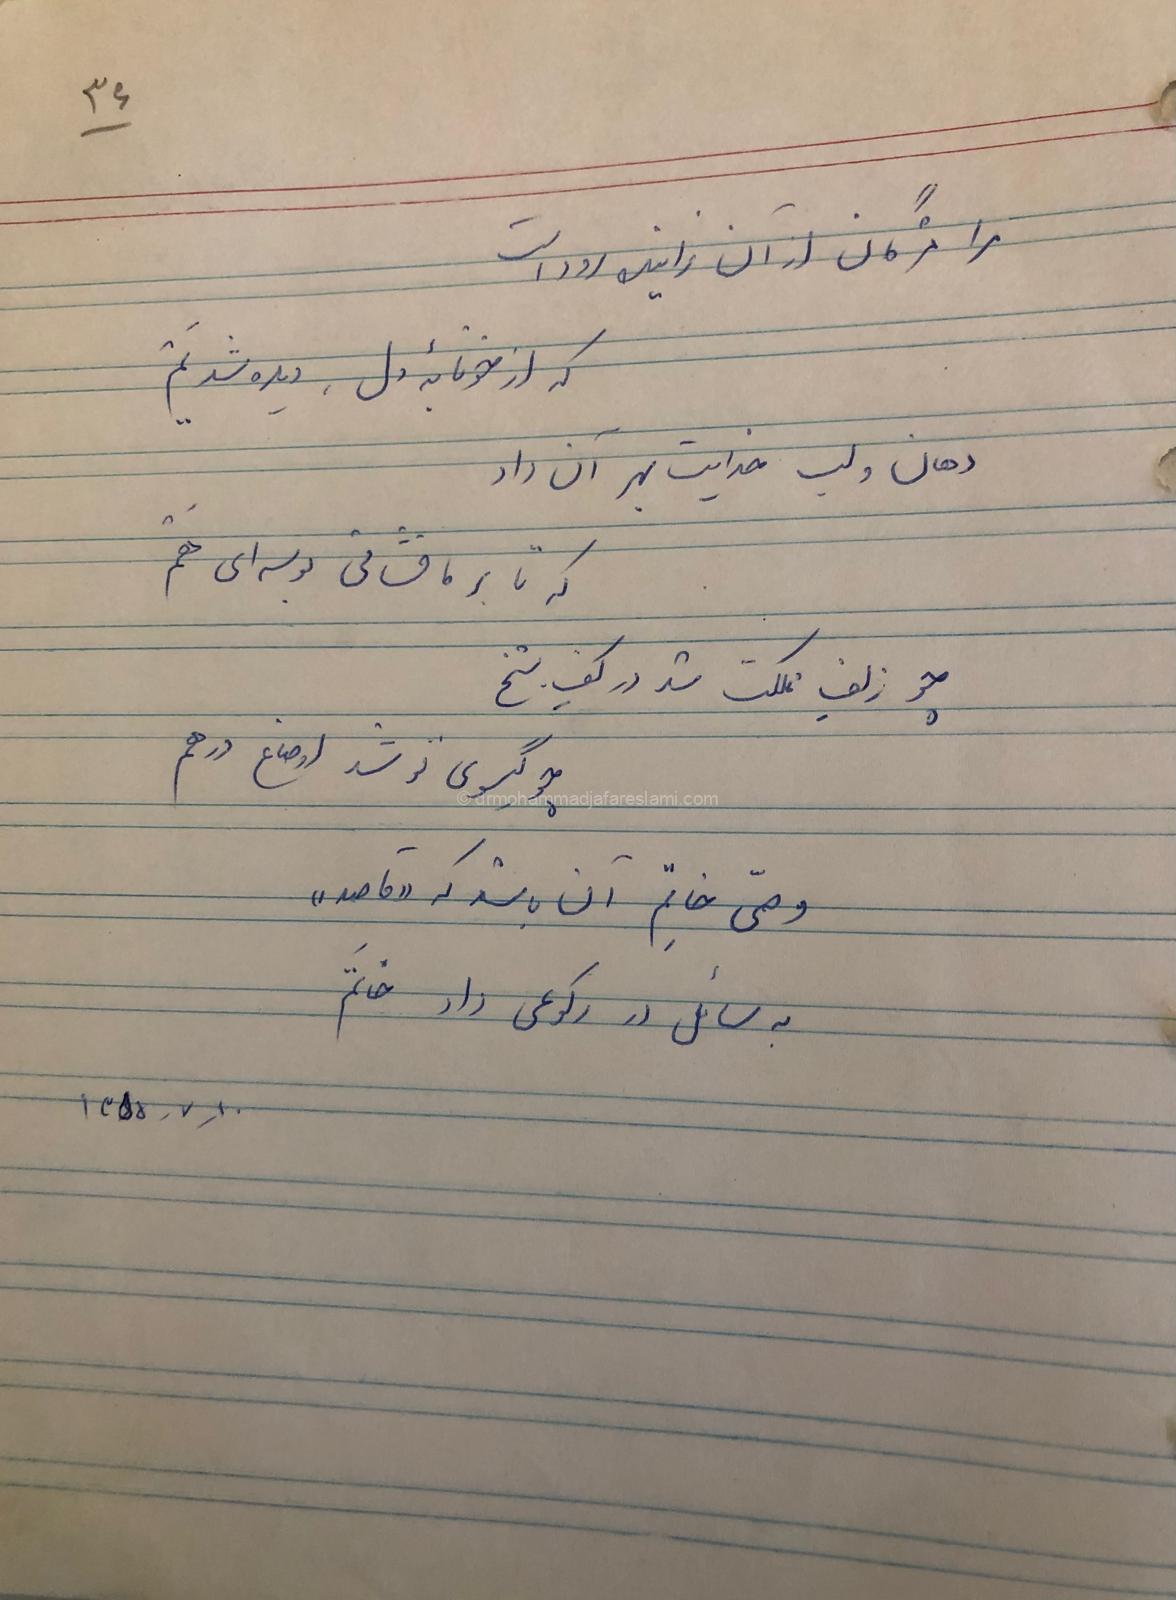 ۳۶
مرا مژگان از آن زاینده رود است
که از خونابهٔ دل، دیده شد یَم
دهان و لب خدایت بهر آن داد
که تا بر ما فشانی بوسه‌ای هَم
چو زلفِ شد در کفِ شیخ
چو گیسوی تو شد اوضاع درهم
وصیّ خاتِم آن باشد که «قاصد»
به سائل در رکوعی داد خاتَم
© drmohammadjafareslami.com